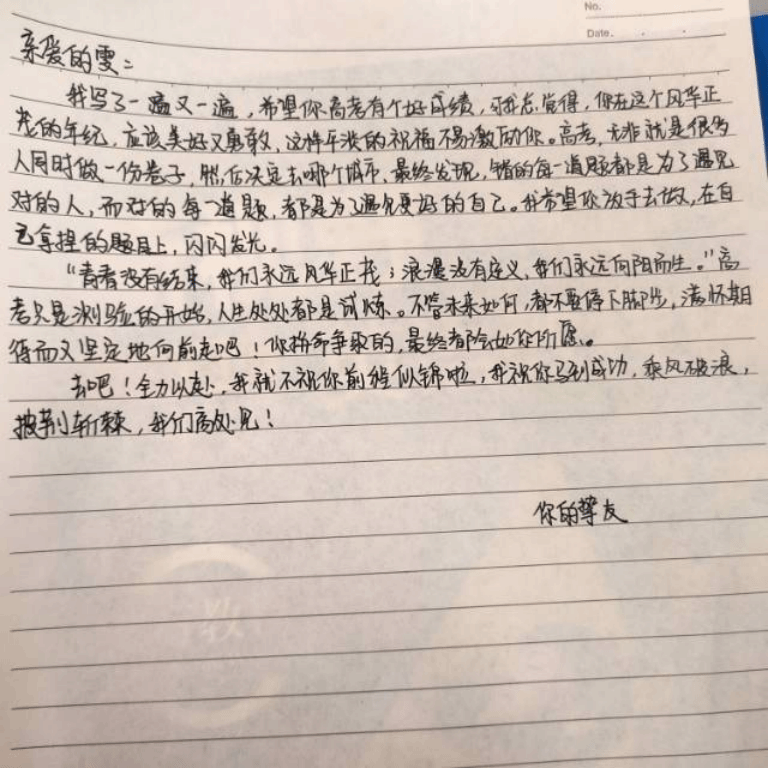 No.
Date.
亲爱的雯：
我写了一遍又一遍，希望你高考有个好成绩，可我总觉得，你在这个风华正
茂的年纪，应该美好又勇敢，这样平淡的祝福不易激励你。高考，无非就是很多
人同时做一份卷子，然后决定去哪个城市，最终发现，错的每一道题都是为了遇见
对的人，而对的每一道题，都是为了遇见更好的自己。我希望你放手去做，在自
己拿捏的题目上，闪闪发光。
“青春没有结束，我们永远风华正茂；浪漫没有定义，我们永远向阳而生。”高
考只是测验的开始，人生处处都是试炼。不管未来如何，都不要停下脚步，满怀期
待而又坚定地向前走吧！你拼命争取的，最终都会如你所愿。
去吧！全力以赴，我就不祝你前程似锦啦，我祝你马到成功，乘风破浪，
披荆斩棘，我们高处见！
你的挚友